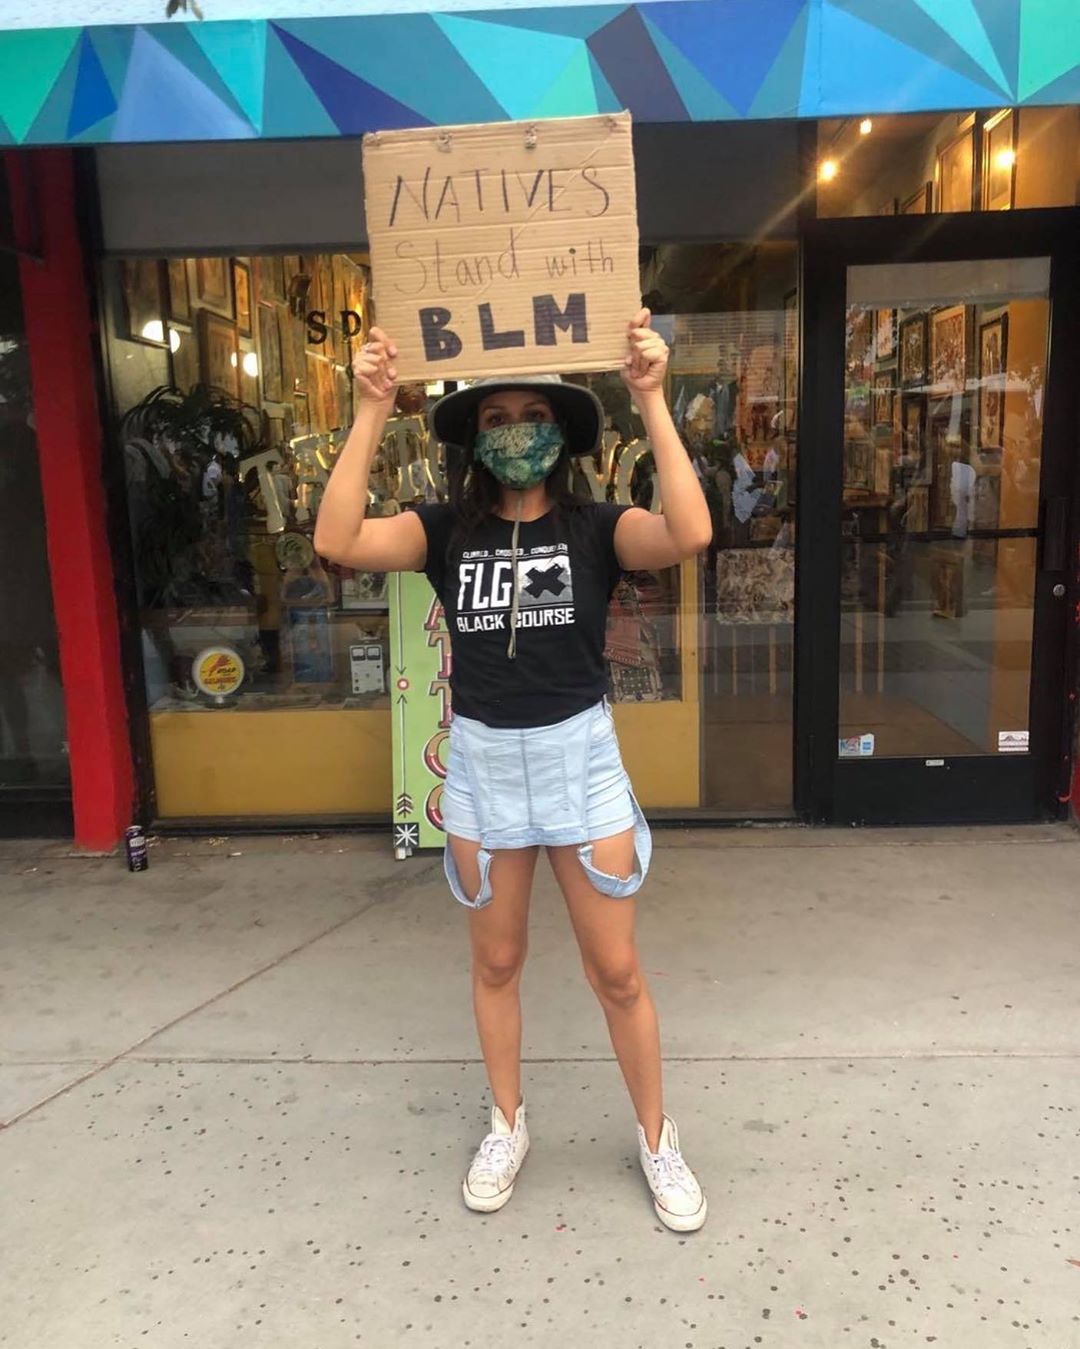 NATIVES
Stand with
BLM
SD
CLIMBED... CROSSED... CONQUERED
FLGX
BLACK COURSE
ATTOO